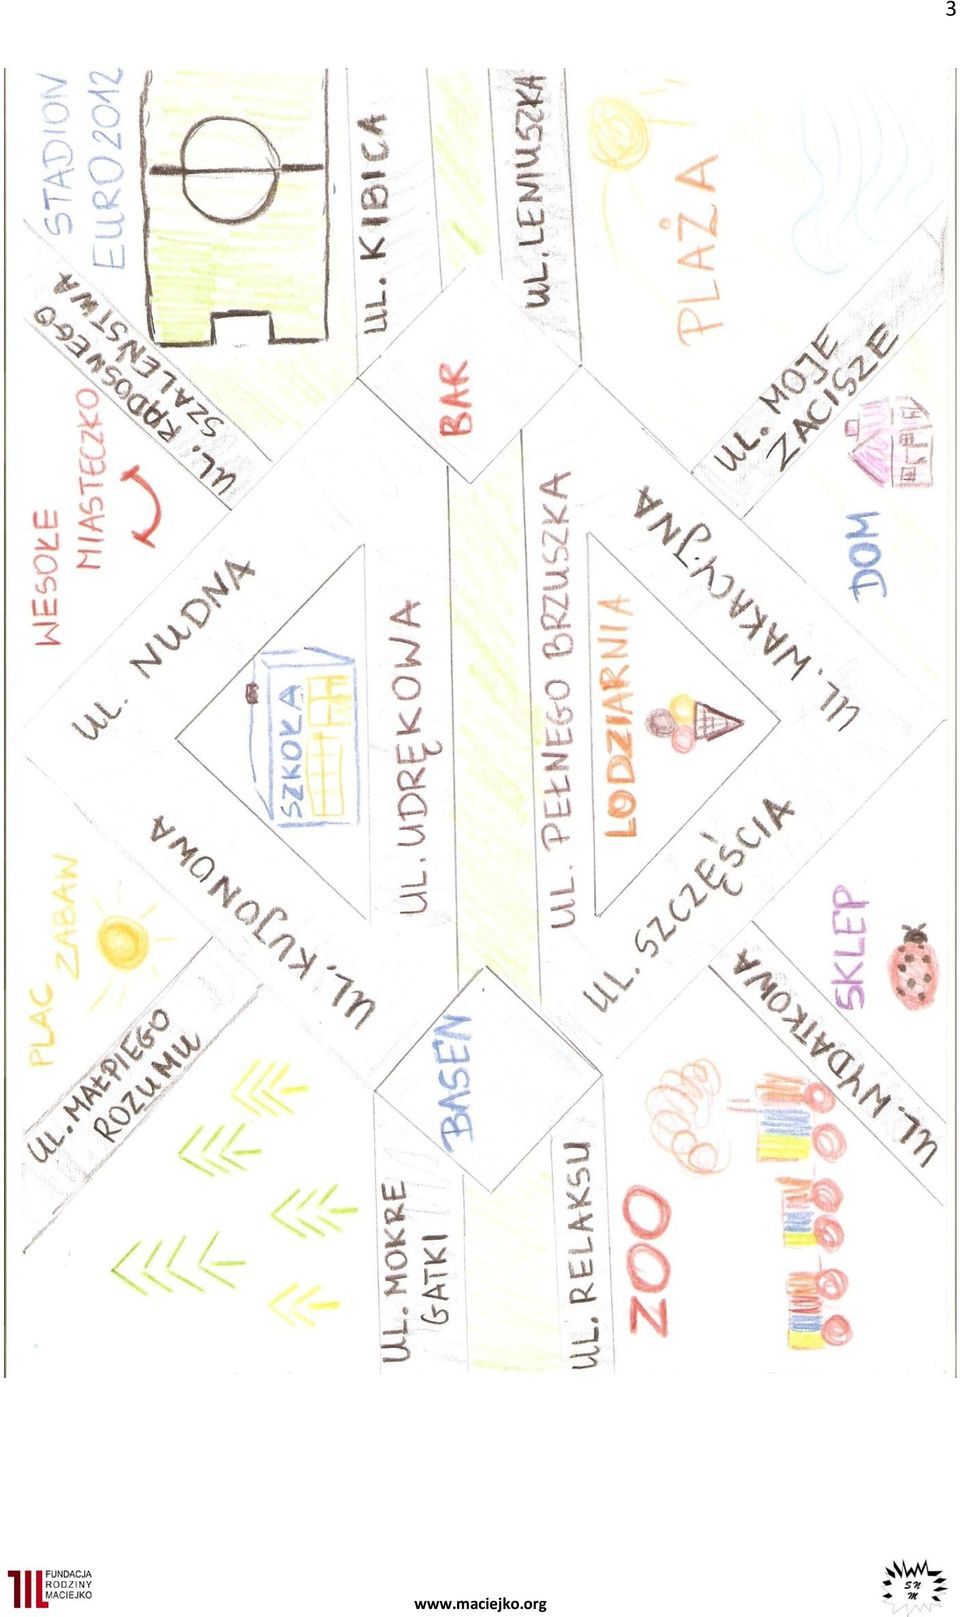 3
STADION
EURO2012
UL. RADOSNEGO
SZALEŃSTWA
WESOŁE
MIASTECZKO
UL. NUDNA
SZKOŁA
UL. KUJONOWA
PLAC
ZABAW
UL. MAŁPIEGO
ROZUMU
UL. KIBICA
BAR
UL. UDRĘKOWA
BASEN
UL. MOKRE
GATKI
UL. LENIUSZKA
UL. PEŁNEGO BRZUSZKA
LODZIARNIA
UL. SZCZĘŚCIA
UL. RELAKSU
ZOO
PLAŻA
UL. MOJE
ZACISZE
UL. WAKACYJNA
DOM
SKLEP
UL. WYDATKOWA
FUNDACJA
RODZINY
MACIEJKO
www.maciejko.org
SN
M